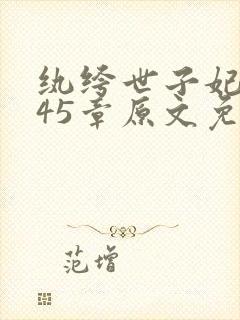 纨绔世子妃
45章原文免
范增